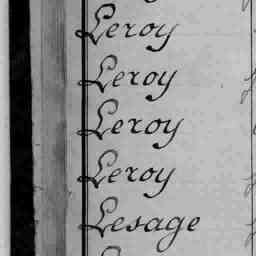 Leroy
Leroy
Leroy
Leroy
Lesage